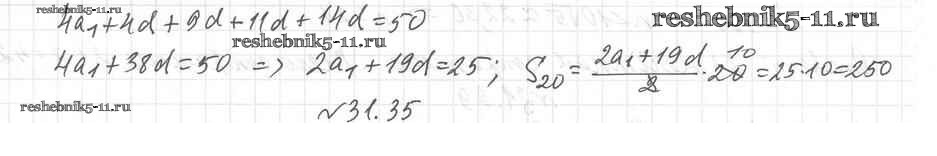 reshebnik5-11.ru
4a₁+4d+9d+11d+14d=50
reshebnik5-11.ru
reshebnik5-11.ru
4a₁+38d=50 => 2a₁+19d=25; S₂₀= (2a₁+19d)/2 · 20 10 =25·10=250
reshebnik5-11.ru
№31.35